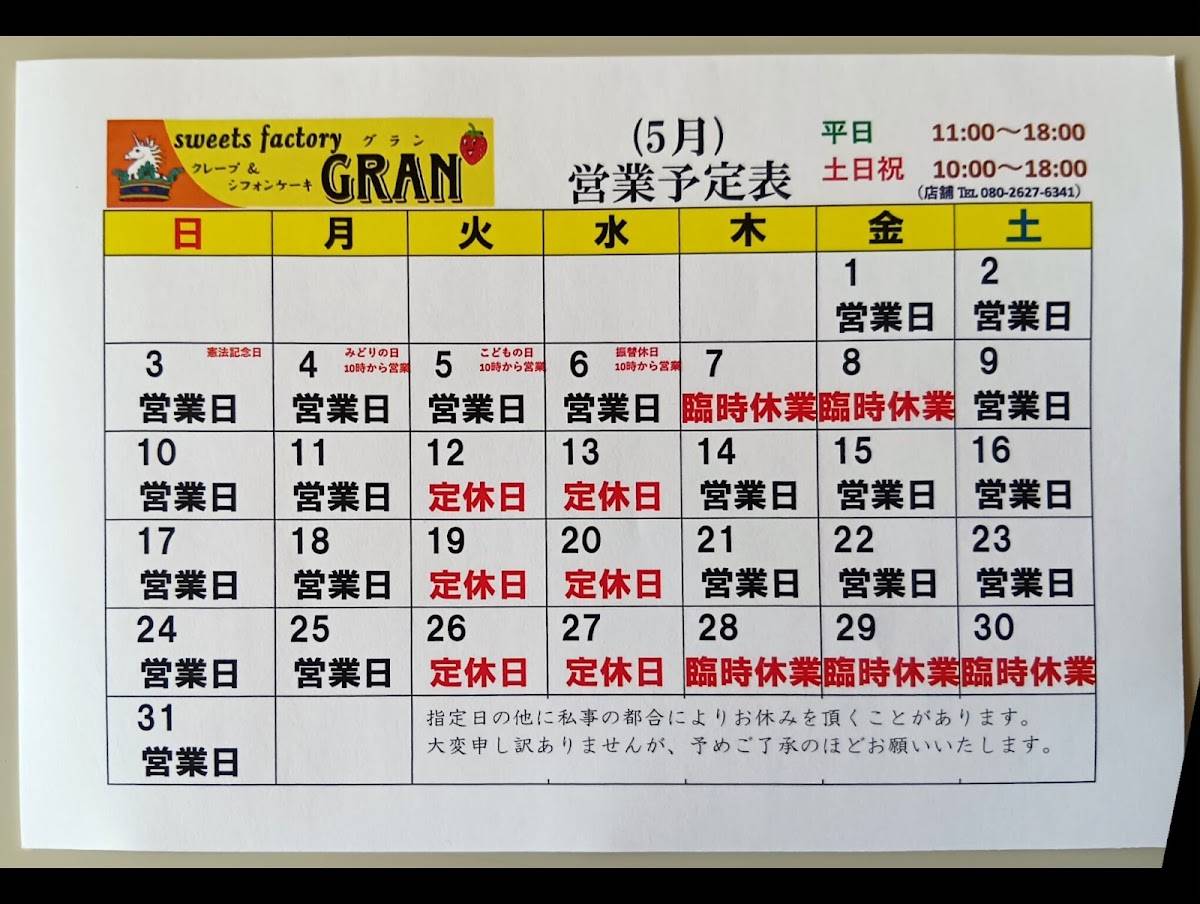 sweets factory グラン
クレープ &
シフォンケーキ
GRAN
(5月)
営業予定表
平日 11:00～18:00
土日祝 10:00～18:00
(店舗 ℡ 080-2627-6341)
日 月 火 水 木 金 土
1 2
営業日 営業日
3 憲法記念日 4 みどりの日 5 こどもの日 6 振替休日 7 8 9
10時から営業 10時から営業 10時から営業
営業日 営業日 営業日 営業日 臨時休業 臨時休業 営業日
10 11 12 13 14 15 16
営業日 営業日 定休日 定休日 営業日 営業日 営業日
17 18 19 20 21 22 23
営業日 営業日 定休日 定休日 営業日 営業日 営業日
24 25 26 27 28 29 30
営業日 営業日 定休日 定休日 臨時休業 臨時休業 臨時休業
31
営業日
指定日の他に私事の都合によりお休みを頂くことがあります。
大変申し訳ありませんが、予めご了承のほどお願いいたします。